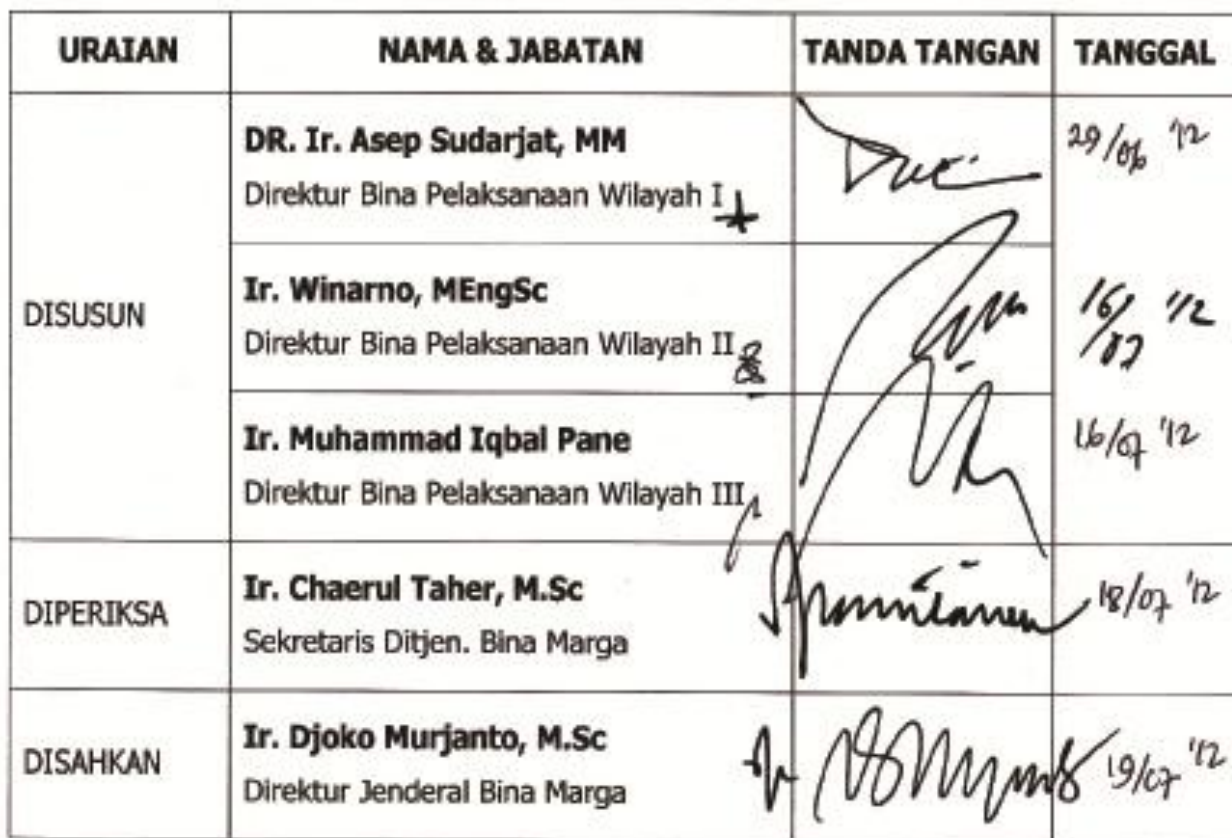 URAIAN NAMA & JABATAN TANDA TANGAN TANGGAL
DR. Ir. Asep Sudarjat, MM
Direktur Bina Pelaksanaan Wilayah I
29/06 '12
DISUSUN
Ir. Winarno, MEngSc
Direktur Bina Pelaksanaan Wilayah II
16/07 '12
Ir. Muhammad Iqbal Pane
Direktur Bina Pelaksanaan Wilayah III
16/07 '12
DIPERIKSA
Ir. Chaerul Taher, M.Sc
Sekretaris Ditjen. Bina Marga
18/07 '12
DISAHKAN
Ir. Djoko Murjanto, M.Sc
Direktur Jenderal Bina Marga
19/07 '12